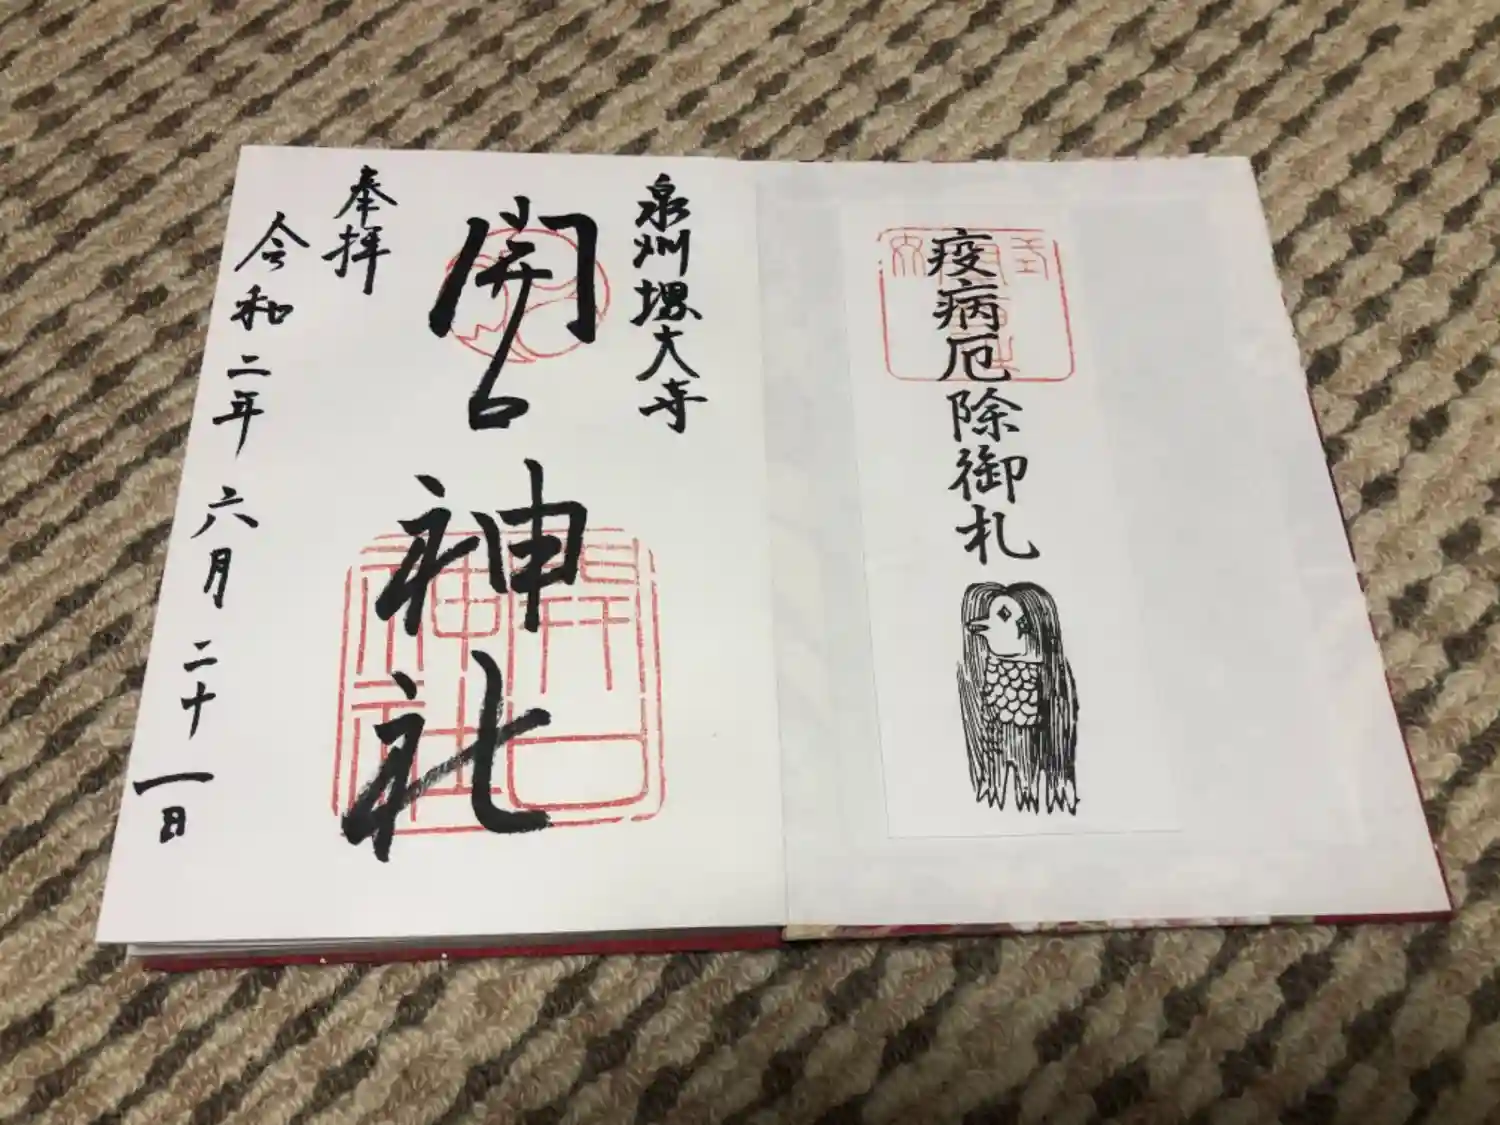 疫病厄除御札
泉州堺大寺
開口神社
奉拝
令和二年六月二十一日
開口
神社